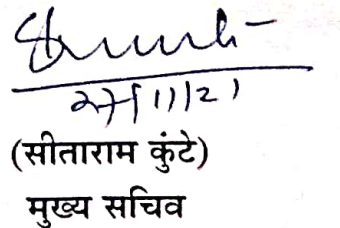 27/11/21
(सीताराम कुंटे)
मुख्य सचिव